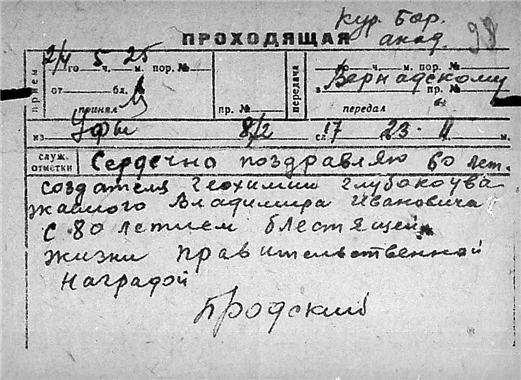 Кур. Бор.
ПРОХОДЯЩАЯ
акад. 98
24 го 5 ч. 25 м. пор. №
го ч. м. пор. №
Вернадскому
прием
от бл. №
передача
з пр. №
принял
пр. №
передал
из Уфы 8/2 сл 17 23 Ч
служ. отметки
Сердечно поздравляю 60 лет.
создателя Геохимии глубокоува
жаемого Владимира Ивановича
С 80 летием блестящей
жизни правительственной
Наградой
Бродский